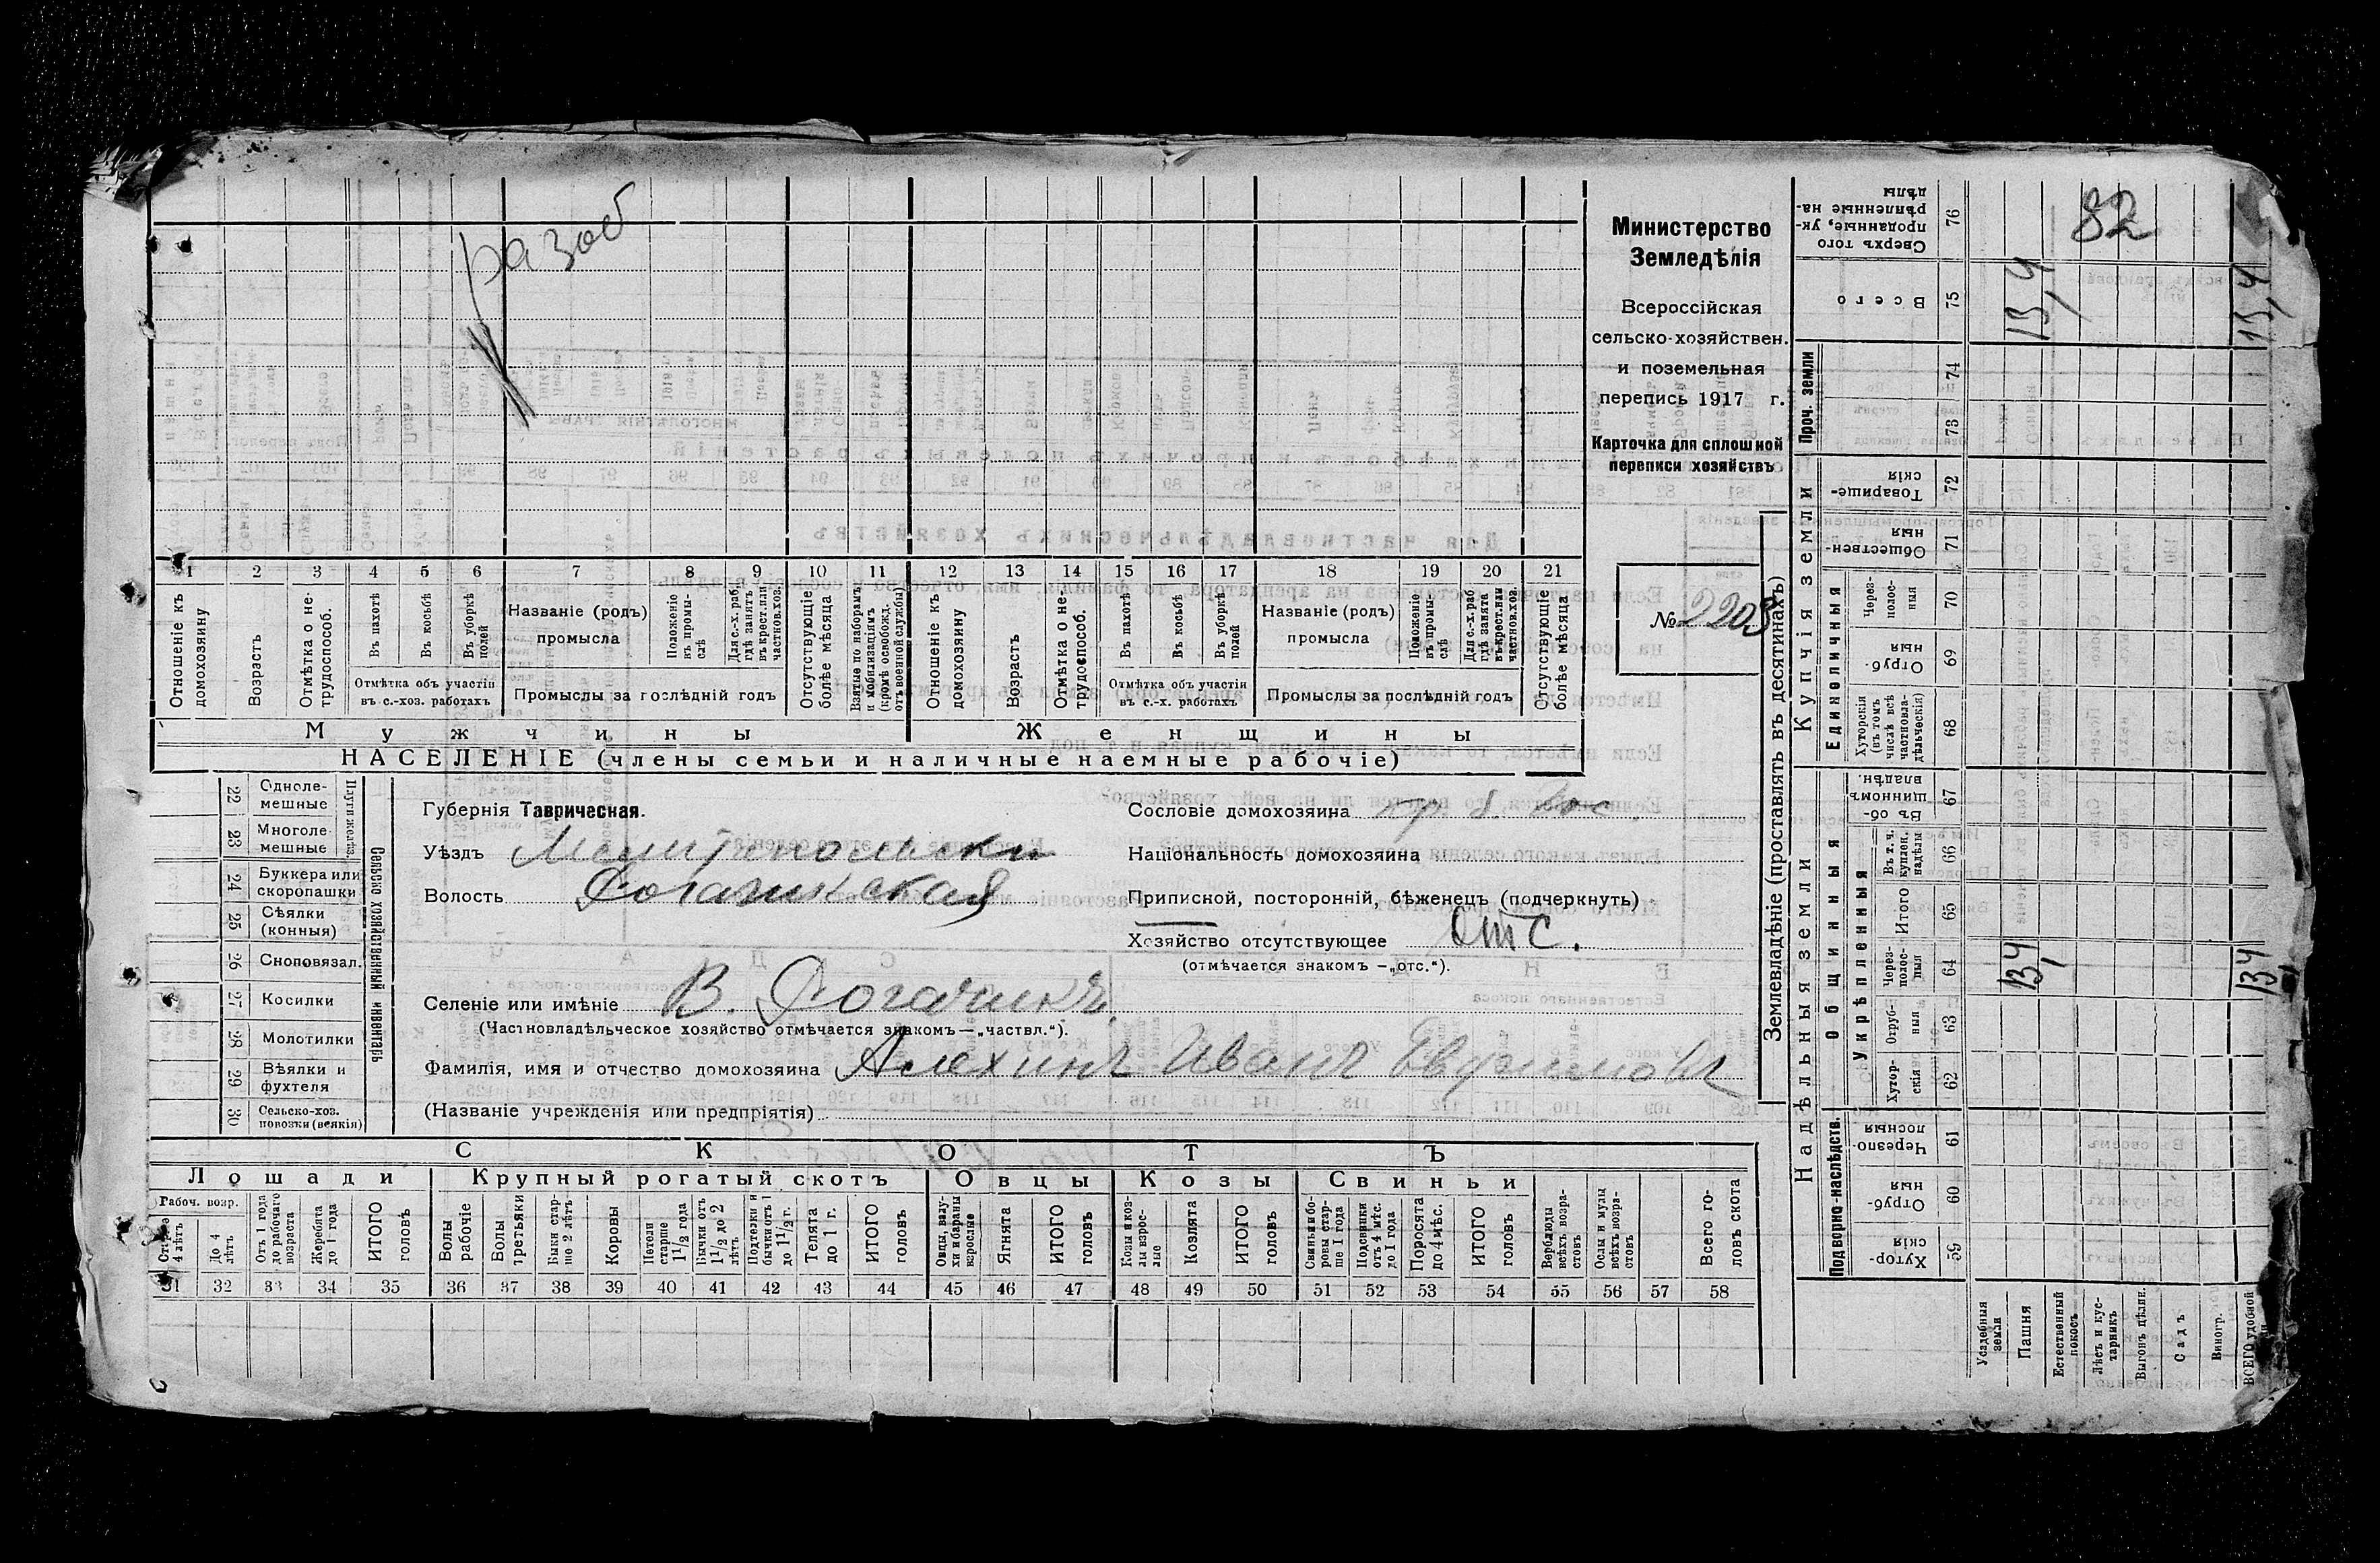 разоб
1 2 3 4 5 6 7 8 9 10 11 12 13 14 15 16 17 18 19 20 21
Отношеніе къ домохозяину
Возрастъ
Отмѣтка о нетрудоспособ.
Въ пахотѣ
Въ косьбѣ
Въ уборкѣ полей
Отмѣтка объ участіи въ с.-хоз. работахъ
Названіе (родъ) промысла
Положеніе въ промыслѣ
Для с.-х. раб, гдѣ занятъ въ крест. или частнов. хоз.
Промыслы за послѣдній годъ
Отсутствующіе болѣе мѣсяца
Взятые по наборамъ и мобилизаціямъ (кромѣ освобожд. отъ военной службы)
Отношеніе къ домохозяину
Возрастъ
Отмѣтка о нетрудоспособ.
Въ пахотѣ
Въ косьбѣ
Въ уборкѣ полей
Отмѣтка объ участіи въ с.-х. работахъ
Названіе (родъ) промысла
Положеніе въ промыслѣ
Для с.-х. раб гдѣ занята въ крест. или частнов. хоз.
Промыслы за послѣдній годъ
Отсутствующіе болѣе мѣсяца
Мужчины
Женщины
НАСЕЛЕНІЕ (члены семьи и наличные наемные рабочіе)
Министерство
Земледѣлія
Всероссійская
сельско-хозяйствен.
и поземельная
перепись 1917 г.
Карточка для сплошной
переписи хозяйствъ
№ 2203
22 Однолемешные
23 Многолемешные
Плуги желѣз.
24 Буккера или скоропашки
25 Сѣялки (конныя)
26 Сноповязал.
27 Косилки
28 Молотилки
29 Вѣялки и фухтеля
30 Сельско-хоз. повозки (всякія)
Сельско хозяйственный инвентарь
Губернія Таврическая.
Уѣздъ Мелитопольскій
Волость Рогачикская
Селеніе или имѣніе В. Рогачикъ
(Частновладѣльческое хозяйство отмѣчается знакомъ—„частвл.“).
Фамилія, имя и отчество домохозяина Алехинъ Иванъ Евфимовъ
(Названіе учрежденія или предпріятія)
Сословіе домохозяина кр. б. гос.
Національность домохозяина
Приписной, посторонній, бѣженецъ (подчеркнуть)
Хозяйство отсутствующее отс.
(отмѣчается знакомъ —„отс.“).
СКОТЪ
Лошади
Крупный рогатый скотъ
Овцы
Козы
Свиньи
Рабоч. возр.
Старше 4 лѣтъ
До 4 лѣтъ
Отъ 1 года до рабочаго возраста
Жеребята до 1 года
ИТОГО головъ
Волы рабочіе
Волы третьяки
Быки старше 2 лѣтъ
Коровы
Нетели старше 1 1/2 года
Бычки отъ 1 1/2 до 2 лѣтъ
Подтелки и бычки отъ 1 до 1 1/2 г.
Телята до 1 г.
ИТОГО головъ
Овцы, валухи и бараны взрослые
Ягнята
ИТОГО головъ
Козы и козлы взрослые
Козлята
ИТОГО головъ
Свиньи и боровы старше 1 года
Подсвинки отъ 4 мѣс. до 1 года
Поросята до 4 мѣс.
ИТОГО головъ
Верблюды всѣхъ возрастовъ
Ослы и мулы всѣхъ возрастовъ
Всего головъ скота
31 32 33 34 35 36 37 38 39 40 41 42 43 44 45 46 47 48 49 50 51 52 53 54 55 56 57 58
Землевладѣніе (проставлять въ десятинахъ)
Купчія земли
Надѣльныя земли
Проч. земли
Единоличныя
Общинныя
Укрѣпленныя
Подворно-наслѣдств.
Сверхъ того проданные, укрѣпленные надѣлы 76
82
Всего 75 13,4 13,4
74
73
Товарищескія 72
Общественныя 71
Черезполосныя 70
Отрубныя 69
Хуторскія (въ томъ числѣ всѣ частновладѣльческія) 68
Въ общинномъ владѣн. 67
Въ т. ч. куплен. надѣлы 66
Итого 65
Черезполосныя 64 13,4 13,4
Отрубныя 63
Хуторскія 62
Черезполосныя 61
Отрубныя 60
Хуторскія 59
Усадебныя земли
Пашня
Естественный покосъ
Лѣсъ и кустарникъ
Выгонъ цѣлин.
Садъ
Виногр.
ВСЕГО удобной